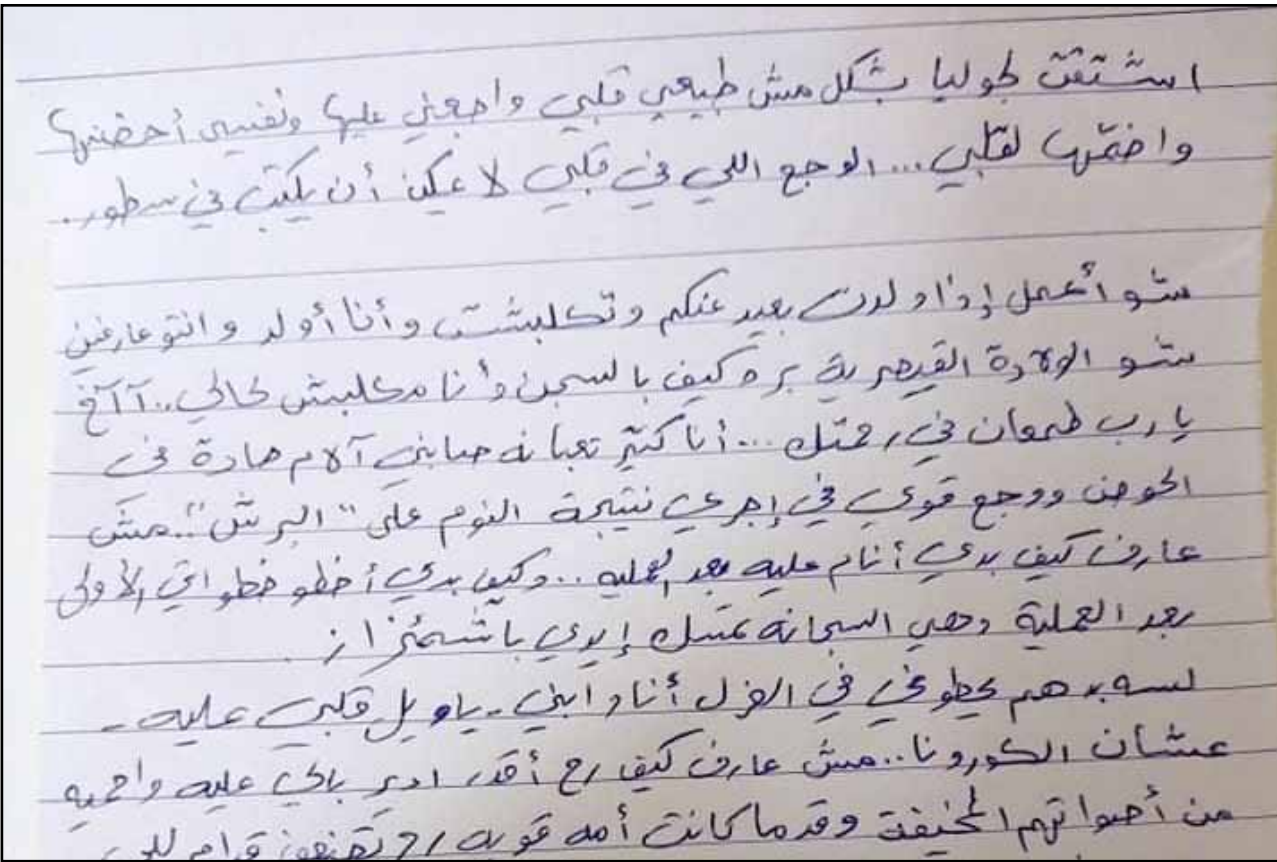 اشتقت لجوليا بشكل مش طبيعي قلبي واجعني عليها ونفسي أحضنها
واضمّها لقلبي... الوجع اللي في قلبي لا يمكن أن يكتب في سطور..
شو أعمل إذا ولدت بعيد عنكم وتكلبشت وأنا أولد وانتو عارفين
شو الولادة القيصرية بره كيف بالسجن وأنا مكلبش لحالي..آآخ
يا رب طمعان في رحمتك... أنا كثير تعبانه صابني آلام حادة في
الحوض ووجع قوي في إجري نتيجة النوم على "البرش"..مش
عارف كيف بدي أنام عليه بعد العملية..وكيف بدي أخطو خطواتي الأولى
بعد العملية وهي السجانه تمسك إيدي باشمئزاز.
لسه بدهم يحطوني في العزل أنا وابني - يا ويل قلبي عليه -
عشان الكورونا..مش عارف كيف رح أقدر ادير بالي عليه واحميه
من أصواتهم المخيفة وقدما كانت أمه قويه رح تضعف قدام اللي